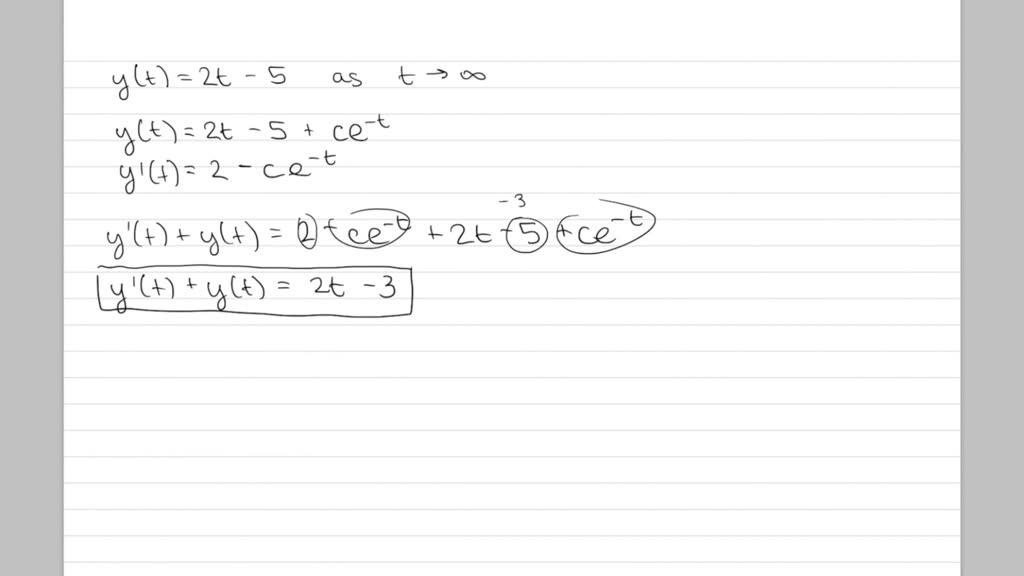 y(t) = 2t - 5 as t → ∞
y(t) = 2t - 5 + ce^-t
y'(t) = 2 - ce^-t
-3
y'(t) + y(t) = 2 - ce^-t + 2t - 5 + ce^-t
y'(t) + y(t) = 2t - 3